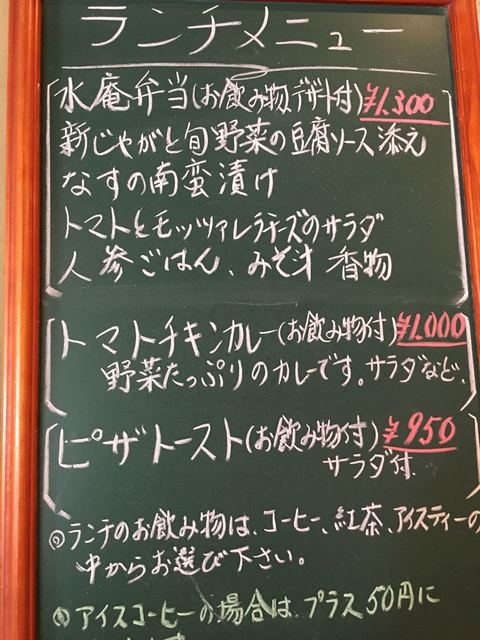 ランチメニュー
水庵弁当(お飲み物デザート付)¥1,300
新じゃがと旬野菜の豆腐ソース添え
なすの南蛮漬け
トマトとモッツァレラチーズのサラダ
人参ごはん、みそ汁 香物
トマトチキンカレー(お飲み物付)¥1,000
野菜たっぷりのカレーです。サラダなど、
ピザトースト(お飲み物付)¥950
サラダ付
◎ランチのお飲み物は、コーヒー、紅茶、アイスティーの
中からお選び下さい。
アイスコーヒーの場合は プラス50円に